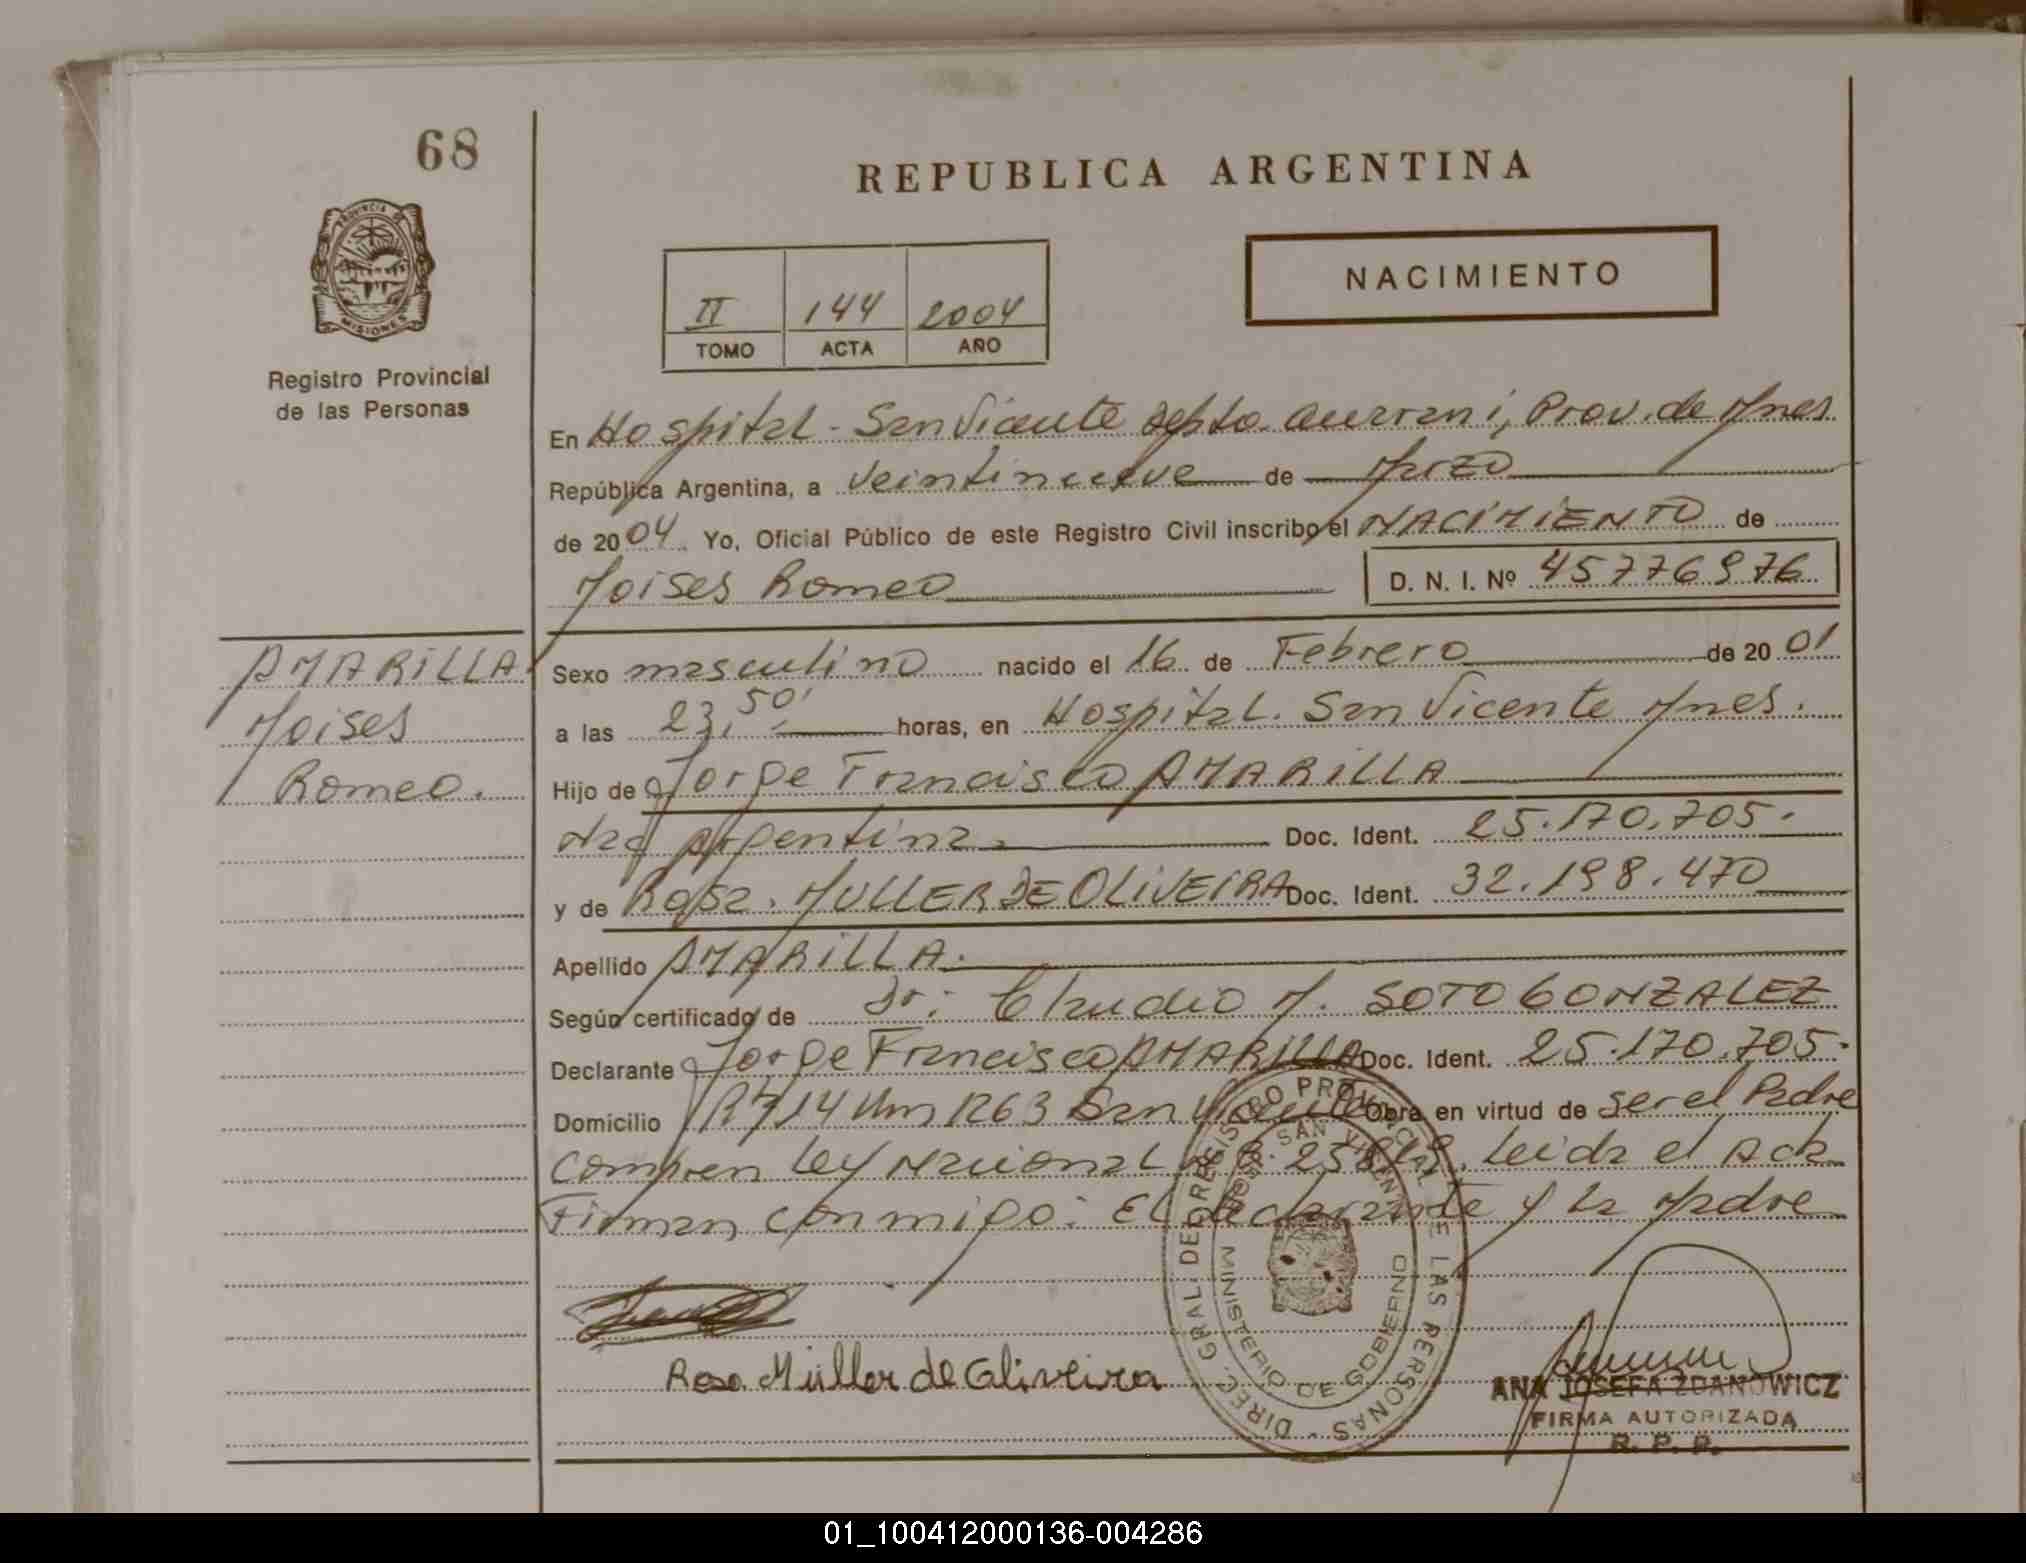 68
REPUBLICA ARGENTINA
PROVINCIA DE
MISIONES
Registro Provincial
de las Personas
NACIMIENTO
II 144 2004
TOMO ACTA AÑO
En Hospital - San Vicente Depto. Guarani, Prov. de Mnes.
República Argentina, a veintinueve de Marzo
de 2004. Yo, Oficial Público de este Registro Civil inscribo el NACIMIENTO de
Moises Romeo D. N. I. Nº 45776976
AMARILLA
Moises
Romeo.
Sexo masculino nacido el 16 de Febrero de 2001
a las 23,50' horas, en Hospital. San Vicente Mnes.
Hijo de Jorge Francisco AMARILLA
Nac Argentina. Doc. Ident. 25.170.705.
y de Rosa. MULLER DE OLIVEIRA Doc. Ident. 32.198.470
Apellido AMARILLA.
Según certificado de Dr: Claudio M. SOTO GONZALEZ
Declarante Jorge Francisco AMARILLA Doc. Ident. 25.170.705.
Domicilio R 14 Km 1263 San Vicente Obra en virtud de ser el Padre
Ley Nacional Leida el Acta
Firman conmigo: El declarante y la Madre
DIREC. GRAL. DEL REGISTRO PROVINCIAL DE LAS PERSONAS
SAN VICENTE
MINISTERIO DE GOBIERNO
Rosa Müller de Oliveira
ANA JOSEFA ZDANOWICZ
FIRMA AUTORIZADA
R. P. P.
01_100412000136-004286